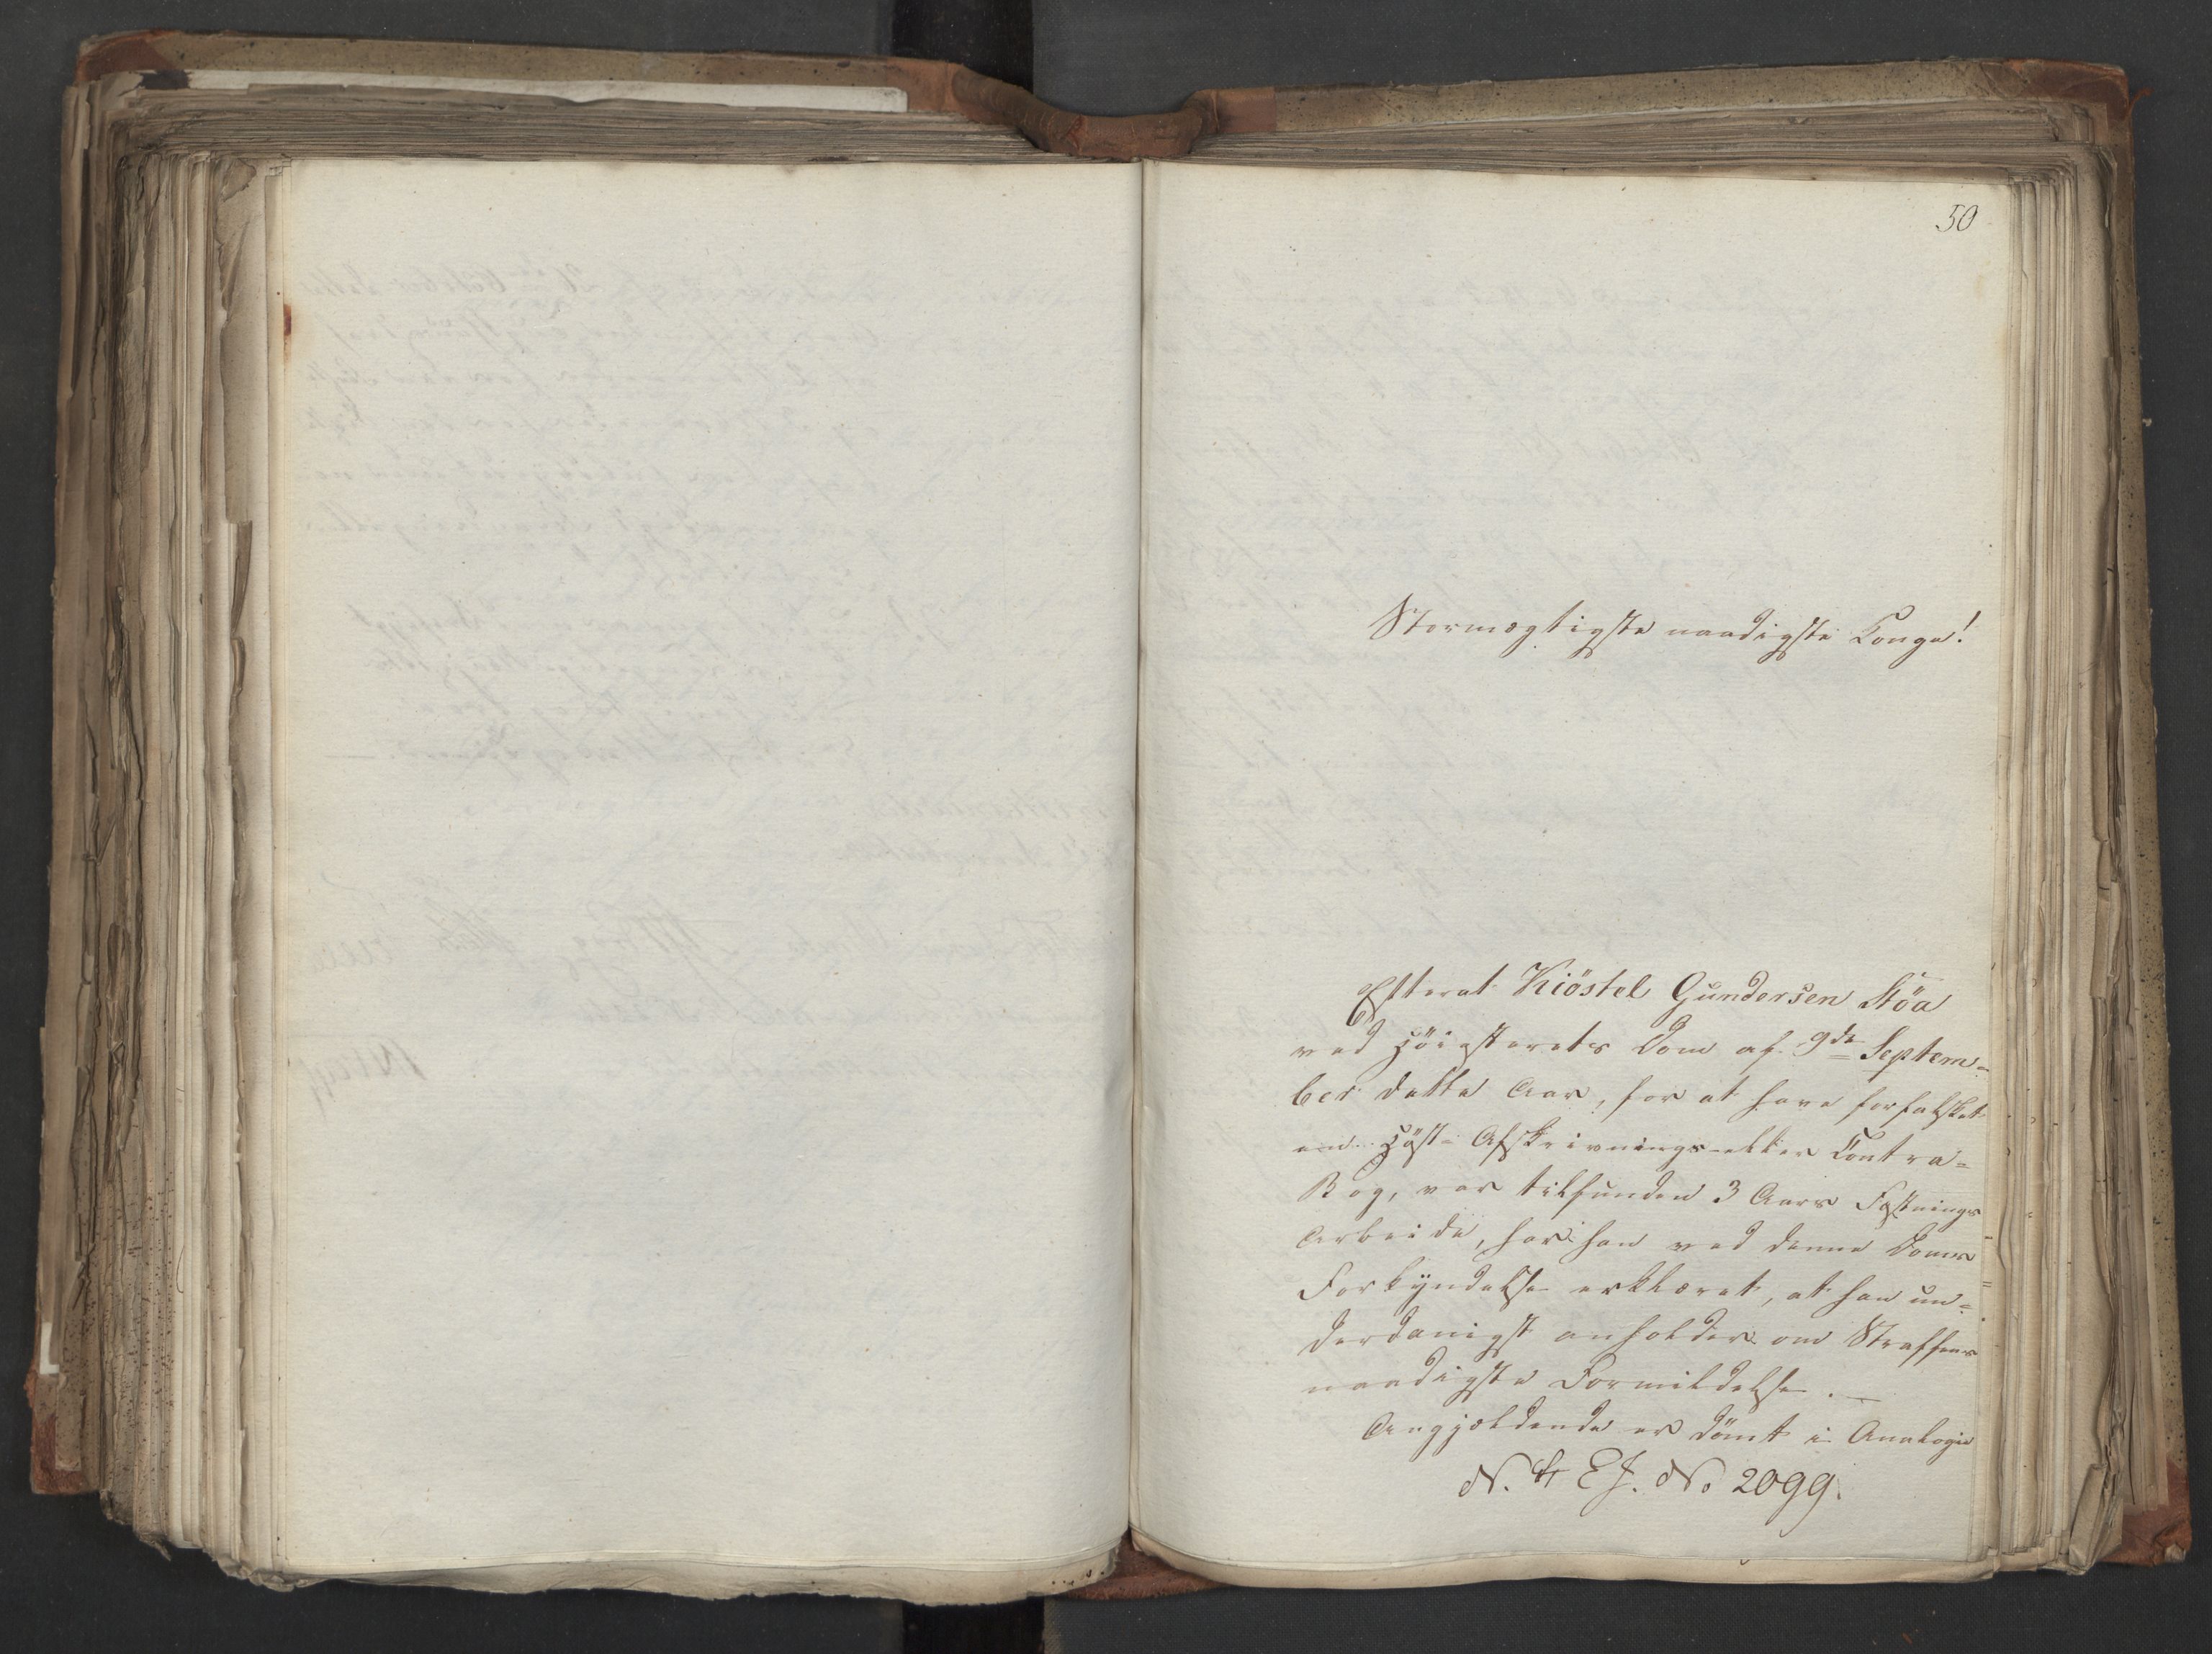 50
Stormægtigste naadigste Konge!
Efterat Kiöstel Gundersen Stöa
ved Höiesterets Dom af 9de Septem=
ber dette Aar, for at have forfalsket
en Afskrivnings- eller Contra=
Bog, var tilfunden 3 Aars Fæstnings
Arbeide, har han ved denne Doms
Forkyndelse erklæret, at han un=
derdanigst anholder om Straffens
naadigste Formildelse. —
Angjældende er dömt i Analogie
No. 2099.